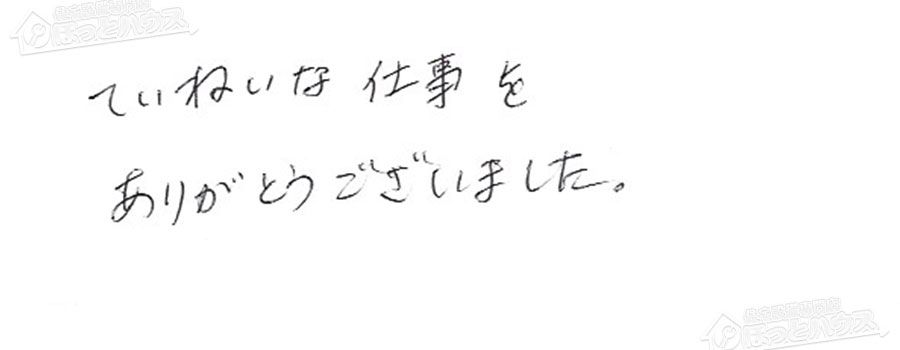 ていねいな 仕事 を
ありがとうございました。
ほっとハウス
ほっとハウス